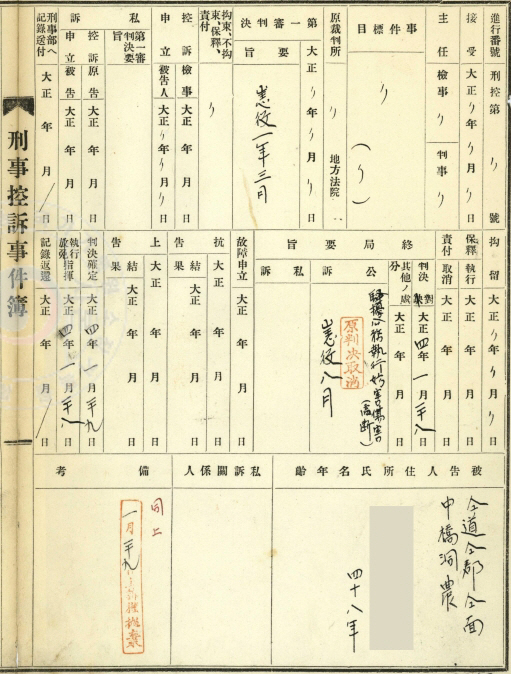 進行番號 刑控第 〃 號
接受 大正〃年〃月〃日
主任檢事 〃 判事 〃
事件標目 〃 (〃)
原裁判所 〃 地方法院
第一審判決要旨 大正〃年〃月〃日
懲役一年三月
拘束、不拘束、保釋、責付 〃
控訴申立 檢事 大正 年 月 日
被告人 大正〃年〃月〃日
私訴 第一審判決要旨
控訴申立 原告 大正 年 月 日
被告 大正 年 月 日
刑事部へ記錄送付 大正 年 月 日
刑事控訴事件簿
拘留 大正〃年〃月〃日
保釋責付 執行 大正 年 月 日
取消 大正 年 月 日
終局要旨
判決 對席 大正四年一月二十八日
其他ノ處分 大正 年 月 日
公訴
騷擾公務執行妨害傷害
原判決取消
懲役八月
私訴
故障申立 大正 年 月 日
抗告 大正 年 月 日
結果
上告 大正 年 月 日
結果 大正 年 月 日
判決確定 大正四年一月二十九日
執行指揮 放免 大正四年一月二十八日
記錄返還 大正 年 月 日
被告人住所氏名年齡
仝道仝郡仝面
中橋洞 農
四十八年
私訴關係人
備考
同上
一月二十九